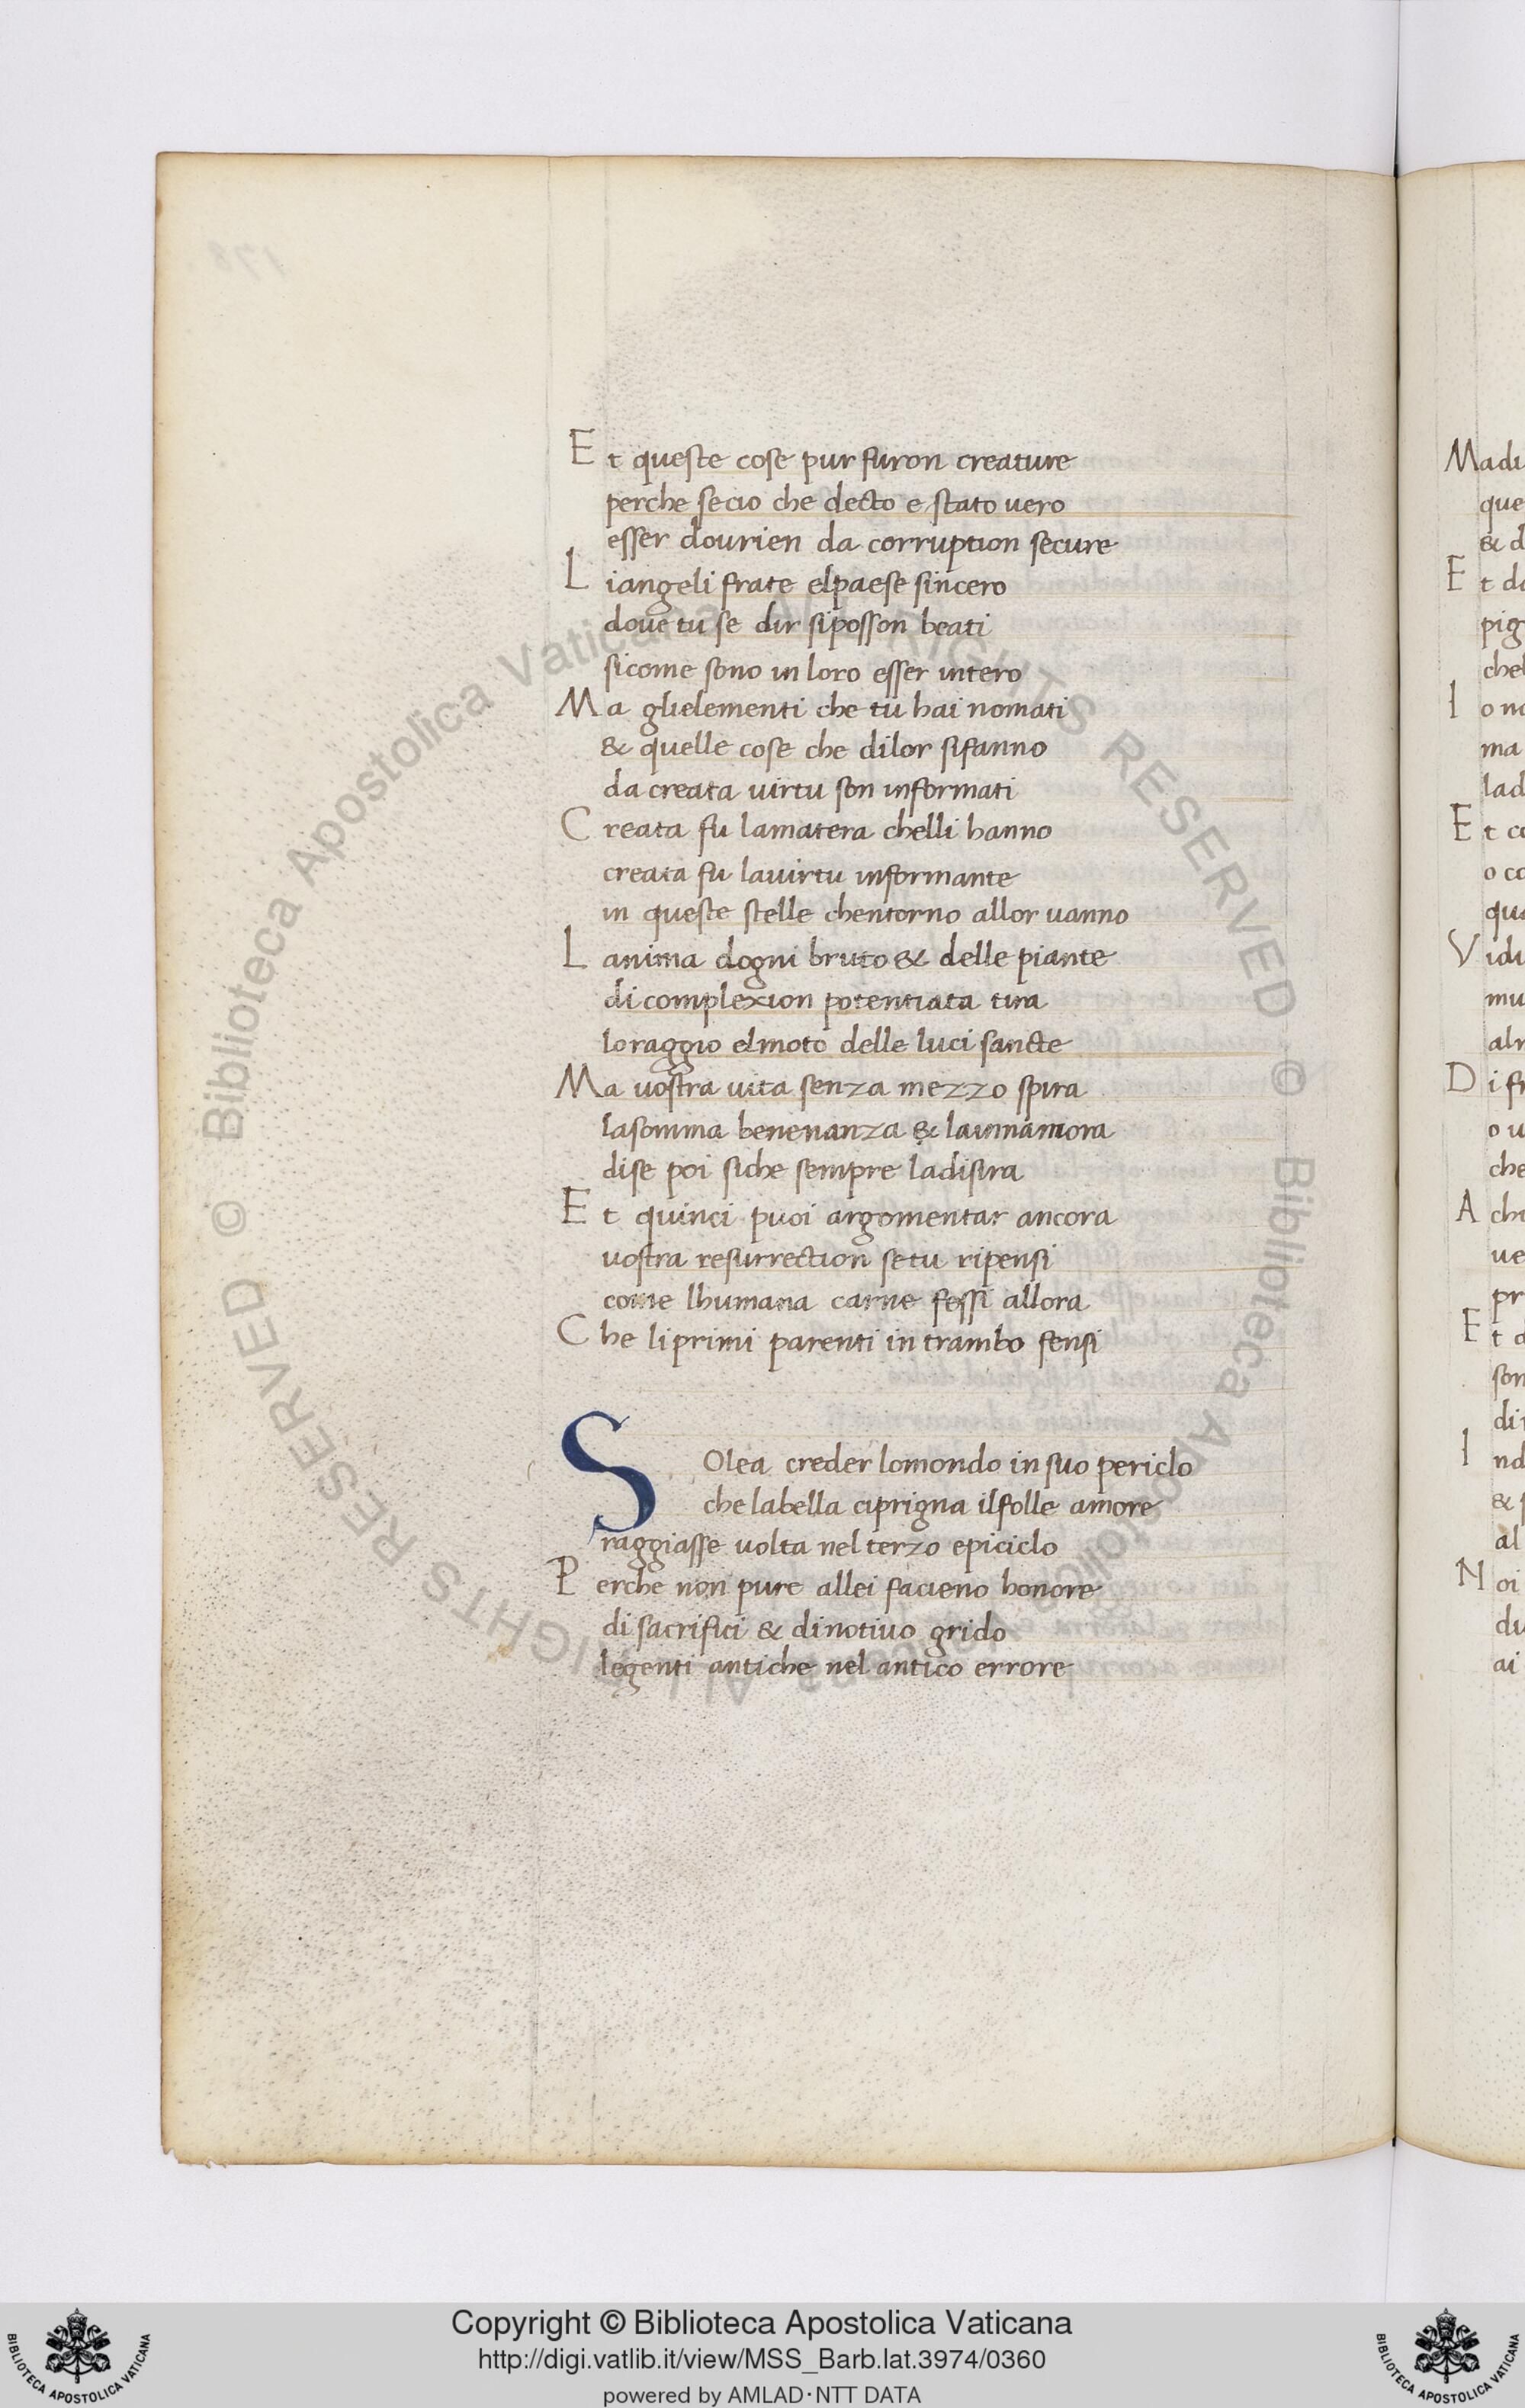 Et queste cose pur furon creature
perche secio che decto e stato uero
esser dourien da corruption secure
Liangeli frate elpaese sincero
doue tu se dir siposson beati
sicome sono in loro esser intero
Ma glielementi che tu hai nomati
& quelle cose che dilor sifanno
da creata uirtu son informati
Creata fu lamatera chelli hanno
creata fu lauirtu informante
in queste stelle chentorno allor uanno
Lanima dogni bruto & delle piante
di complexion potentiata tira
loraggio elmoto delle luci sancte
Ma uostra uita senza mezzo spira
lasomma benenanza & lainnamora
dise poi siche sempre ladisira
Et quinci puoi argomentar ancora
uostra resurrection setu ripensi
come lhumana carne fessi allora
Che liprimi parenti in trambo fensi
SOlea creder lomondo in suo periclo
che labella ciprigna ilfolle amore
raggiasse uolta nel terzo epiciclo
Perche non pure allei facieno honore
di sacrifici & dinotiuo grido
legenti antiche nel antico errore
Madi
que
& d
Et da
pig
chel
Io no
ma
lad
Et co
o co
qua
Vidi
mu
alr
Di fr
o u
che
A chi
ue
pr
Et
son
di
Ind
&
al
Noi
du
ai
© Biblioteca Apostolica Vaticana ALL RIGHTS RESERVED © Biblioteca Apostolica Vaticana ALL RIGHTS RESERVED
Copyright © Biblioteca Apostolica Vaticana
http://digi.vatlib.it/view/MSS_Barb.lat.3974/0360
powered by AMLAD·NTT DATA
BIBLIOTECA APOSTOLICA VATICANA
BIBLIOTECA APOSTOLICA VATICANA